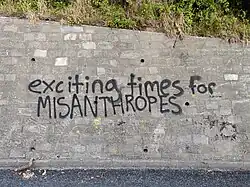 exciting times for
MISANTHROPES